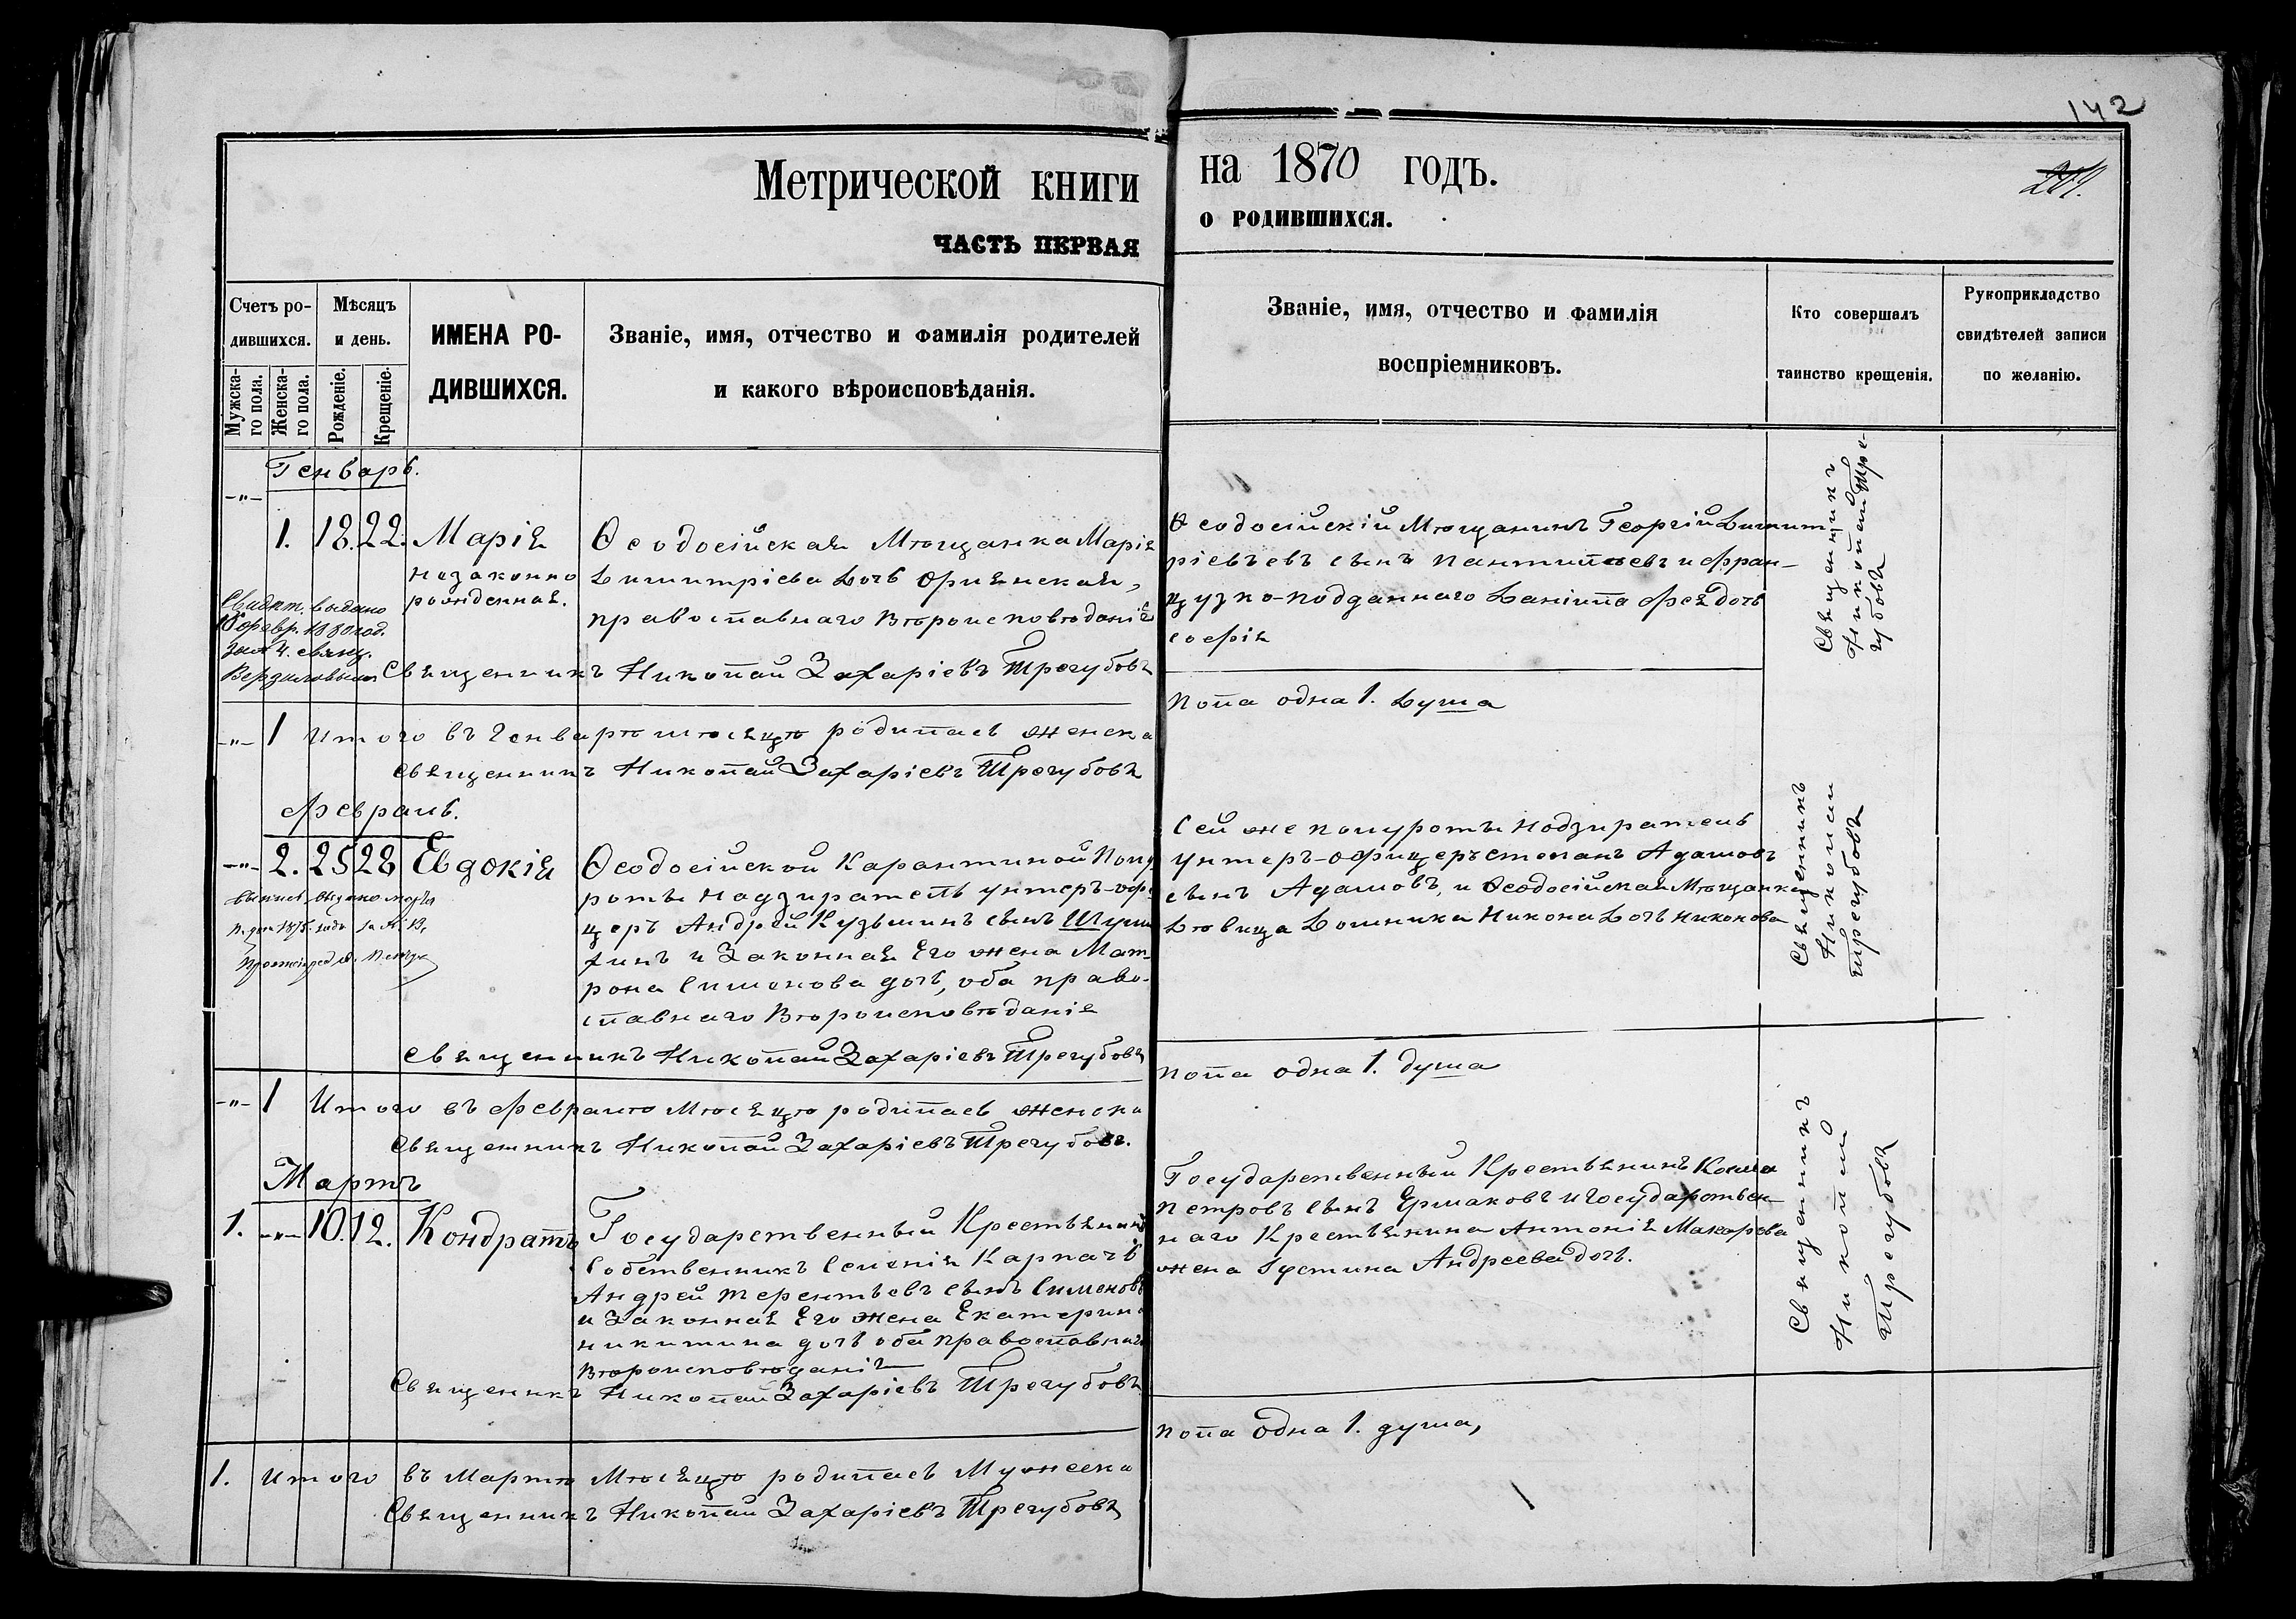 142
Метрической книги на 1870 годъ.
ЧАСТЬ ПЕРВАЯ о родившихся.
201.
Счетъ ро-
дившихся.
Мужска-
го пола.
Женска-
го пола.
Мѣсяцъ
и день.
Рожденіе.
Крещеніе.
ИМЕНА РО-
ДИВШИХСЯ.
Званіе, имя, отчество и фамилія родителей
и какого вѣроисповѣданія.
Званіе, имя, отчество и фамилія
воспріемниковъ.
Кто совершалъ
таинство крещенія.
Рукоприкладство
свидѣтелей записи
по желанію.
Генварь.
-"-
1. 18. 22. Марія
незаконно
рожденная.
Ѳеодосійская Мѣщанка Марія
Димитріева дочь
православнаго Вѣроисповѣданія
Священникъ Николай Захаріевъ Трегубовъ
Свидѣт. выдано
февр. 1880 год.
Ѳеодосійскій Мѣщанинъ Георгій Димит
ріевъ сынъ и Фран-
цузко-подданнаго дочь
Софія
Священникъ
Николай Тре-
губовъ
-"- 1 Итого въ Генварѣ мѣсяцѣ родилась женска
пола одна 1. душа
Священникъ Николай Захаріевъ Трегубовъ
Февраль.
-"- 2. 25 28 Евдокія
Ѳеодосійской Карантиной Полу
роты Надзиратель унтеръ-офи
церъ Андрей Кузьминъ сынъ Шум
хинъ и Законная Его жена Мат-
рона Сименова дочь, оба право-
славнаго Вѣроисповѣданія
Священникъ Николай Захаріевъ Трегубовъ
Сей же полуроты Надзиратель
унтеръ-офицеръ Степанъ Адамовъ
сынъ Адамовъ, и Ѳеодосійская Мѣщанка
Дѣвица Домника Никона Дочь Никонова
Священникъ
Николай
Трегубовъ
-"- 1 Итого въ Февралѣ Мѣсяцѣ родилась женска
пола одна 1. душа
Священникъ Николай Захаріевъ Трегубовъ.
Мартъ
1. -"- 10. 12. Кондратъ
Государственный Крестьянинъ
Собственникъ Селенія Карпачъ
Андрей Терентьевъ сынъ Сименовъ
и Законная Его жена Екатерина
Никитина дочь оба православнаго
Вѣроисповѣданія
Священникъ Николай Захаріевъ Трегубовъ
Государственный Крестьянинъ Косма
Петровъ сынъ Ермаковъ и государствен-
наго Крестьянина Антонія Макарова
жена Іустина Андреева дочь.
Священникъ
Николай
Трегубовъ
1. Итого въ Мартѣ Мѣсяцѣ родилась Мужеска
пола одна 1. душа,
Священникъ Николай Захаріевъ Трегубовъ